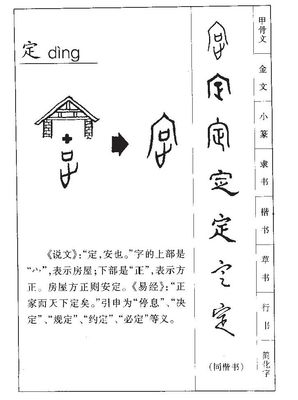 定 dìng
《说文》:“定,安也。”字的上部是
“宀”,表示房屋;下部是“正”,表示方
正。房屋方正则安定。《易经》:“正
家而天下定矣。”引申为“停息”、“决
定”、“规定”、“约定”、“必定”等义。
定
定
定
定
定
定
定
(同楷书)
甲骨文
金文
小篆
隶书
楷书
草书
行书
简化字